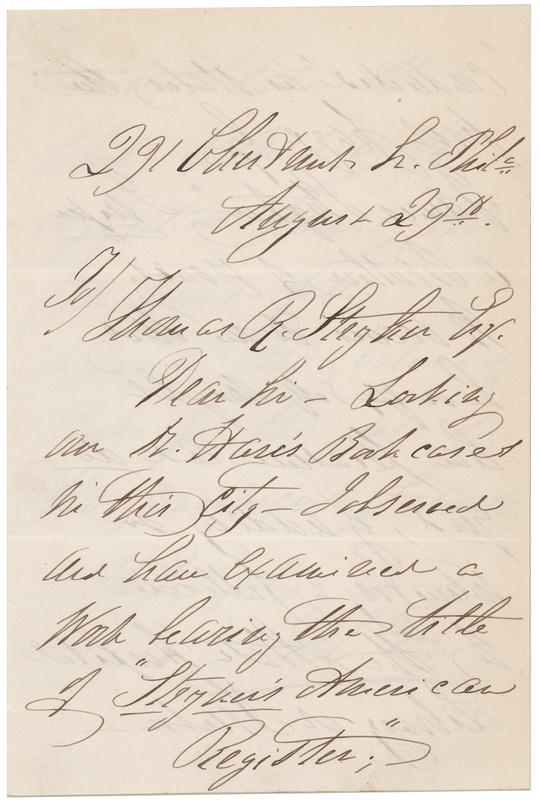 291 Chestnut St. Phila
August 29th.
To/ Thomas R. Stryker Esq.
Dear Sir – Looking
over Dr. Hare's Book cases
in this City – I observed
and have examined a
Work bearing the title
of "Stryker's American
Register;"